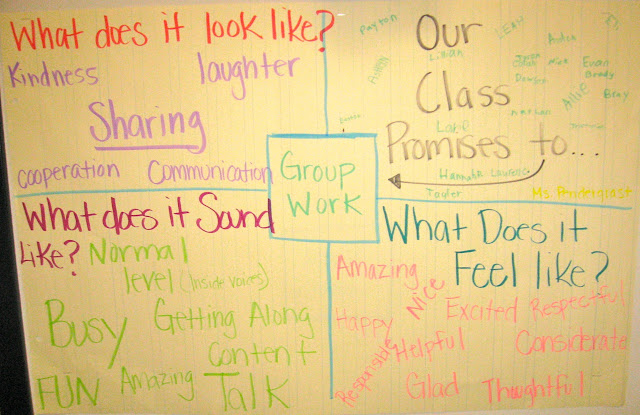 What does it look like?
Kindness
laughter
Sharing
cooperation Communication
Our
Class
Promises to...
Payton
LEAH
Aiden
Lillian
Nick
Evan
Brady
Dawson
Allie
Gray
Hannah
Taylor
Ms. Pendergrast
Group
Work
What does it Sound
Like?
Normal
level (Inside voices)
Busy
Getting Along
Content
FUN
Amazing
Talk
What Does it
Feel like?
Amazing
Nice
Excited
Respectful
Happy
Helpful
Considerate
Responsible
Glad
Thoughtful